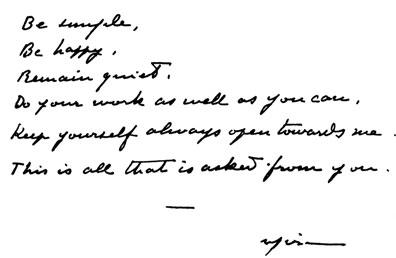 Be simple,
Be happy,
Remain quiet.
Do your work as well as you can,
Keep yourself always open towards me.
This is all that is asked from you.
—